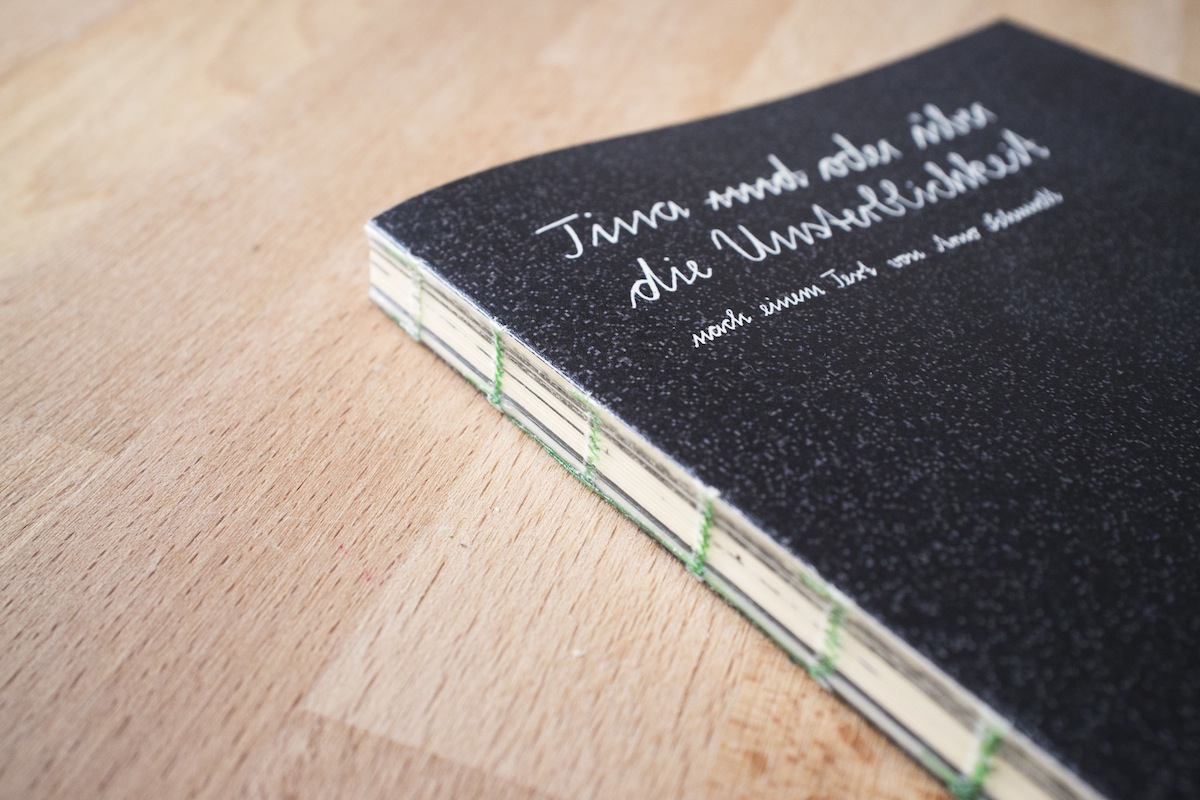 Tina und oder über
die Unsterblichkeit
nach einem Text von Arno Schmidt